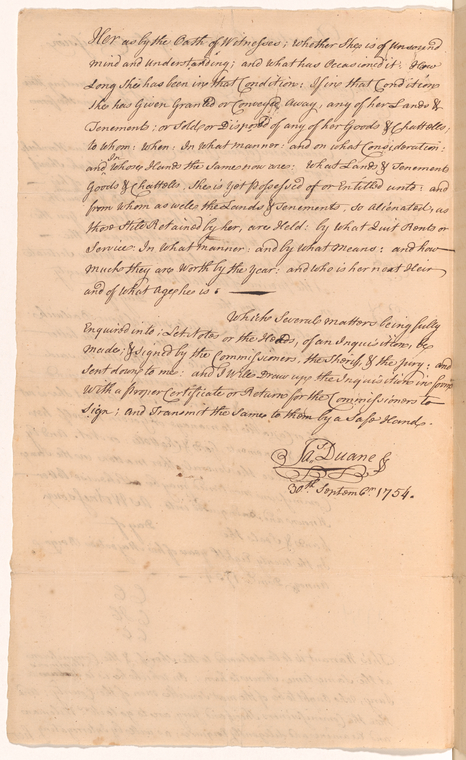 Her as by the Oath of Witnesses; Whether She is of Unsound
mind and Understanding; and what has Occasioned it; How
Long She has been in that Condition: If in that Condition
She has Given Granted or Conveyed Away, any of her Lands &
Tenements; or Sold, or Disposed of any of her Goods & Chattels;
to Whom: When: In What manner: and on what Consideration:
and In Whose Hands the Same now are: What Lands & Tenements
Goods & Chattels, She is yet Possessed of or Entitled unto: and
from Whom as well the Lands & Tenements, So Alienated, as
those Still Retained by her, are Held: by What Quit Rents or
Service In What manner: and by What Means: and how
much they are Worth by the Year: and Who is her next Heir
and of What Age he is.
Which Several matters being fully
Enquired into; Let Notes or the Heads, of an Inquisition, be
made; & Signed by the Commissioners, the Sheriff & the Jury: and
Sent down to me: and I Will Draw up the Inquisition in form
With a Proper Certificate or Return for the Commissioners to
Sign; and Transmit the Same to them by a Safe Hand.
Jas. Duane
30th. Septembr. 1754.